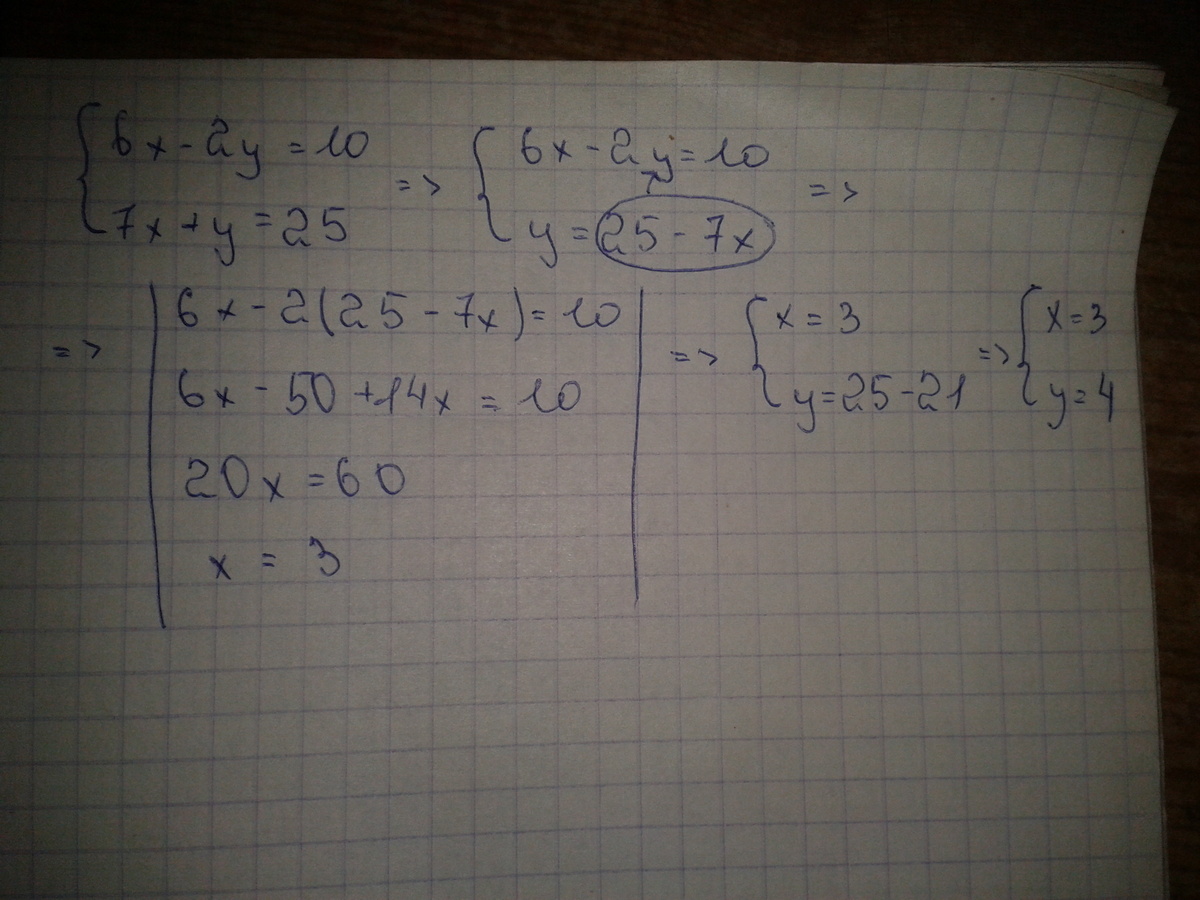 { 6x - 2y = 10
7x + y = 25
=> { 6x - 2y = 10
y = 25 - 7x
=>
=> | 6x - 2(25 - 7x) = 10
6x - 50 + 14x = 10
20x = 60
x = 3 |
=> { x = 3
y = 25 - 21
=> { x = 3
y = 4